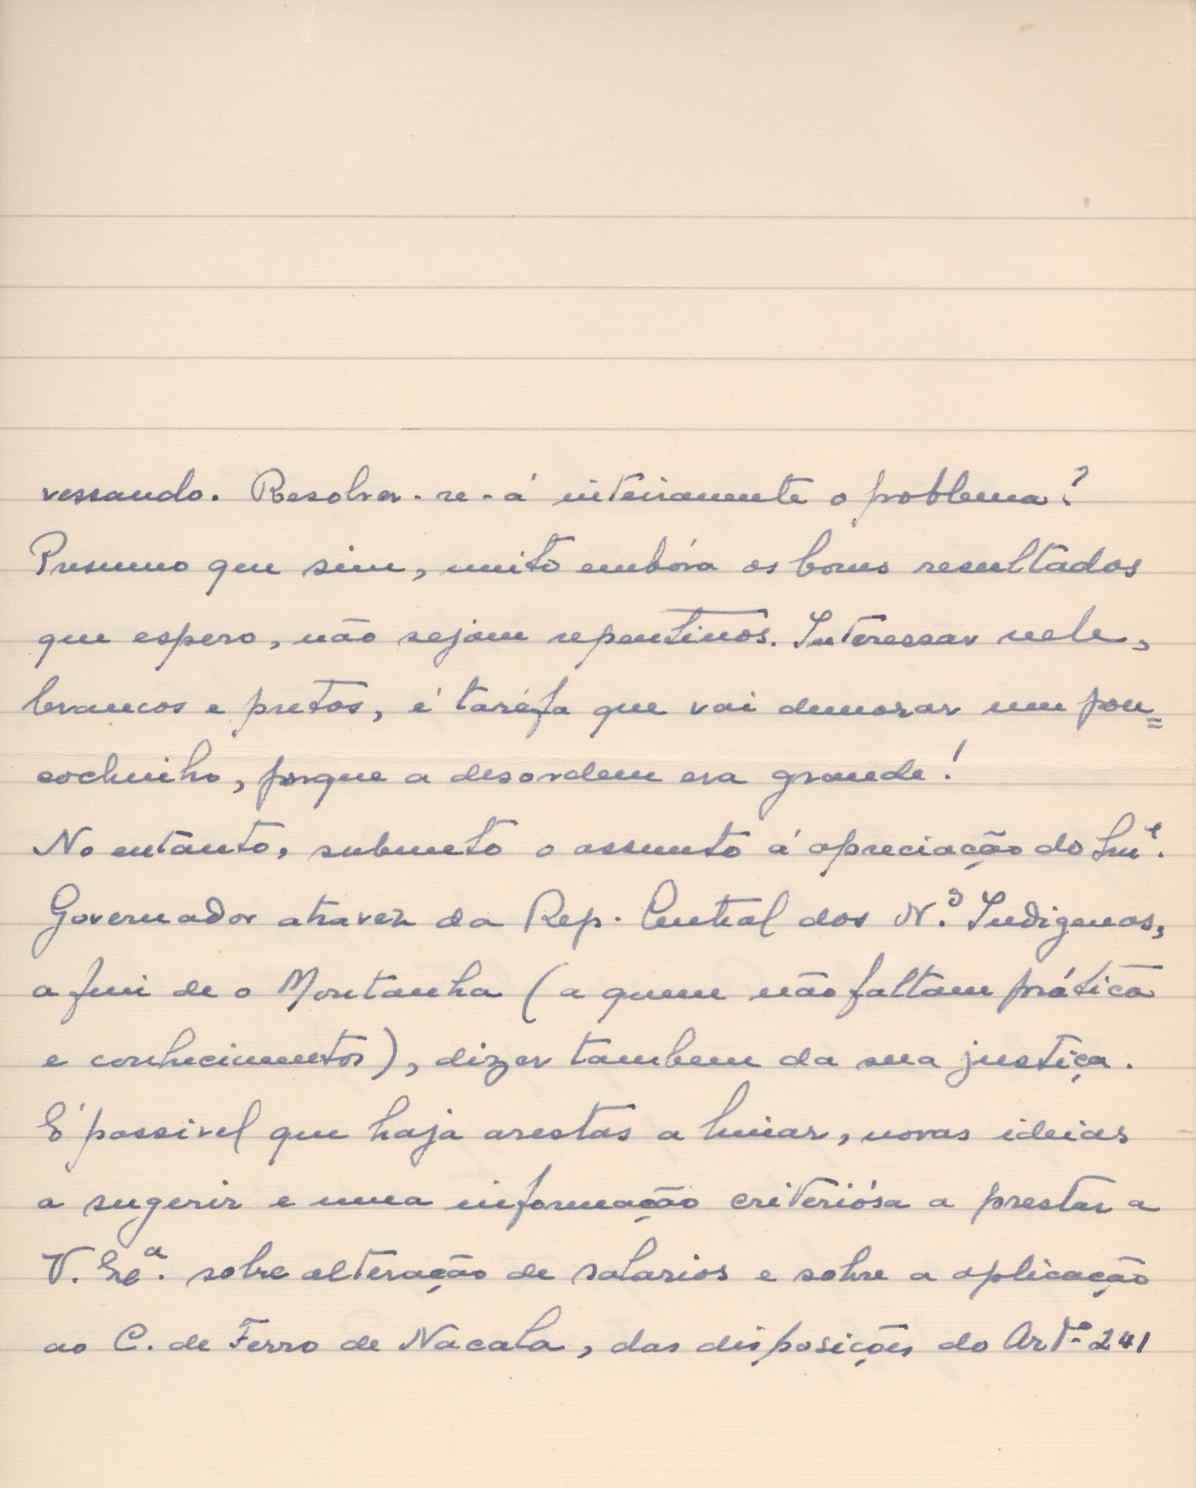 vessando. Resolver-se-á inteiramente o problema?
Presumo que sim, muito embóra os bons resultados
que espero, não sejam repentinos. Interessar nele,
brancos e pretos, é taréfa que vai demorar um pou=
cochinho, porque a desordem era grande!
No entanto, submeto o assunto á apreciação do
Governador atravez da Rep. Central dos N.os Indigenas,
a fim de o Montanha (a quem não faltam prática
e conhecimentos), dizer tambem da sua justiça.
E' possivel que haja arestas a limar, novas ideias
a sugerir e uma informação criteriósa a prestar a
V. Exª. sobre alteração de salarios e sobre a aplicação
ao C. de Ferro de Nacala, das disposições do Artº 241